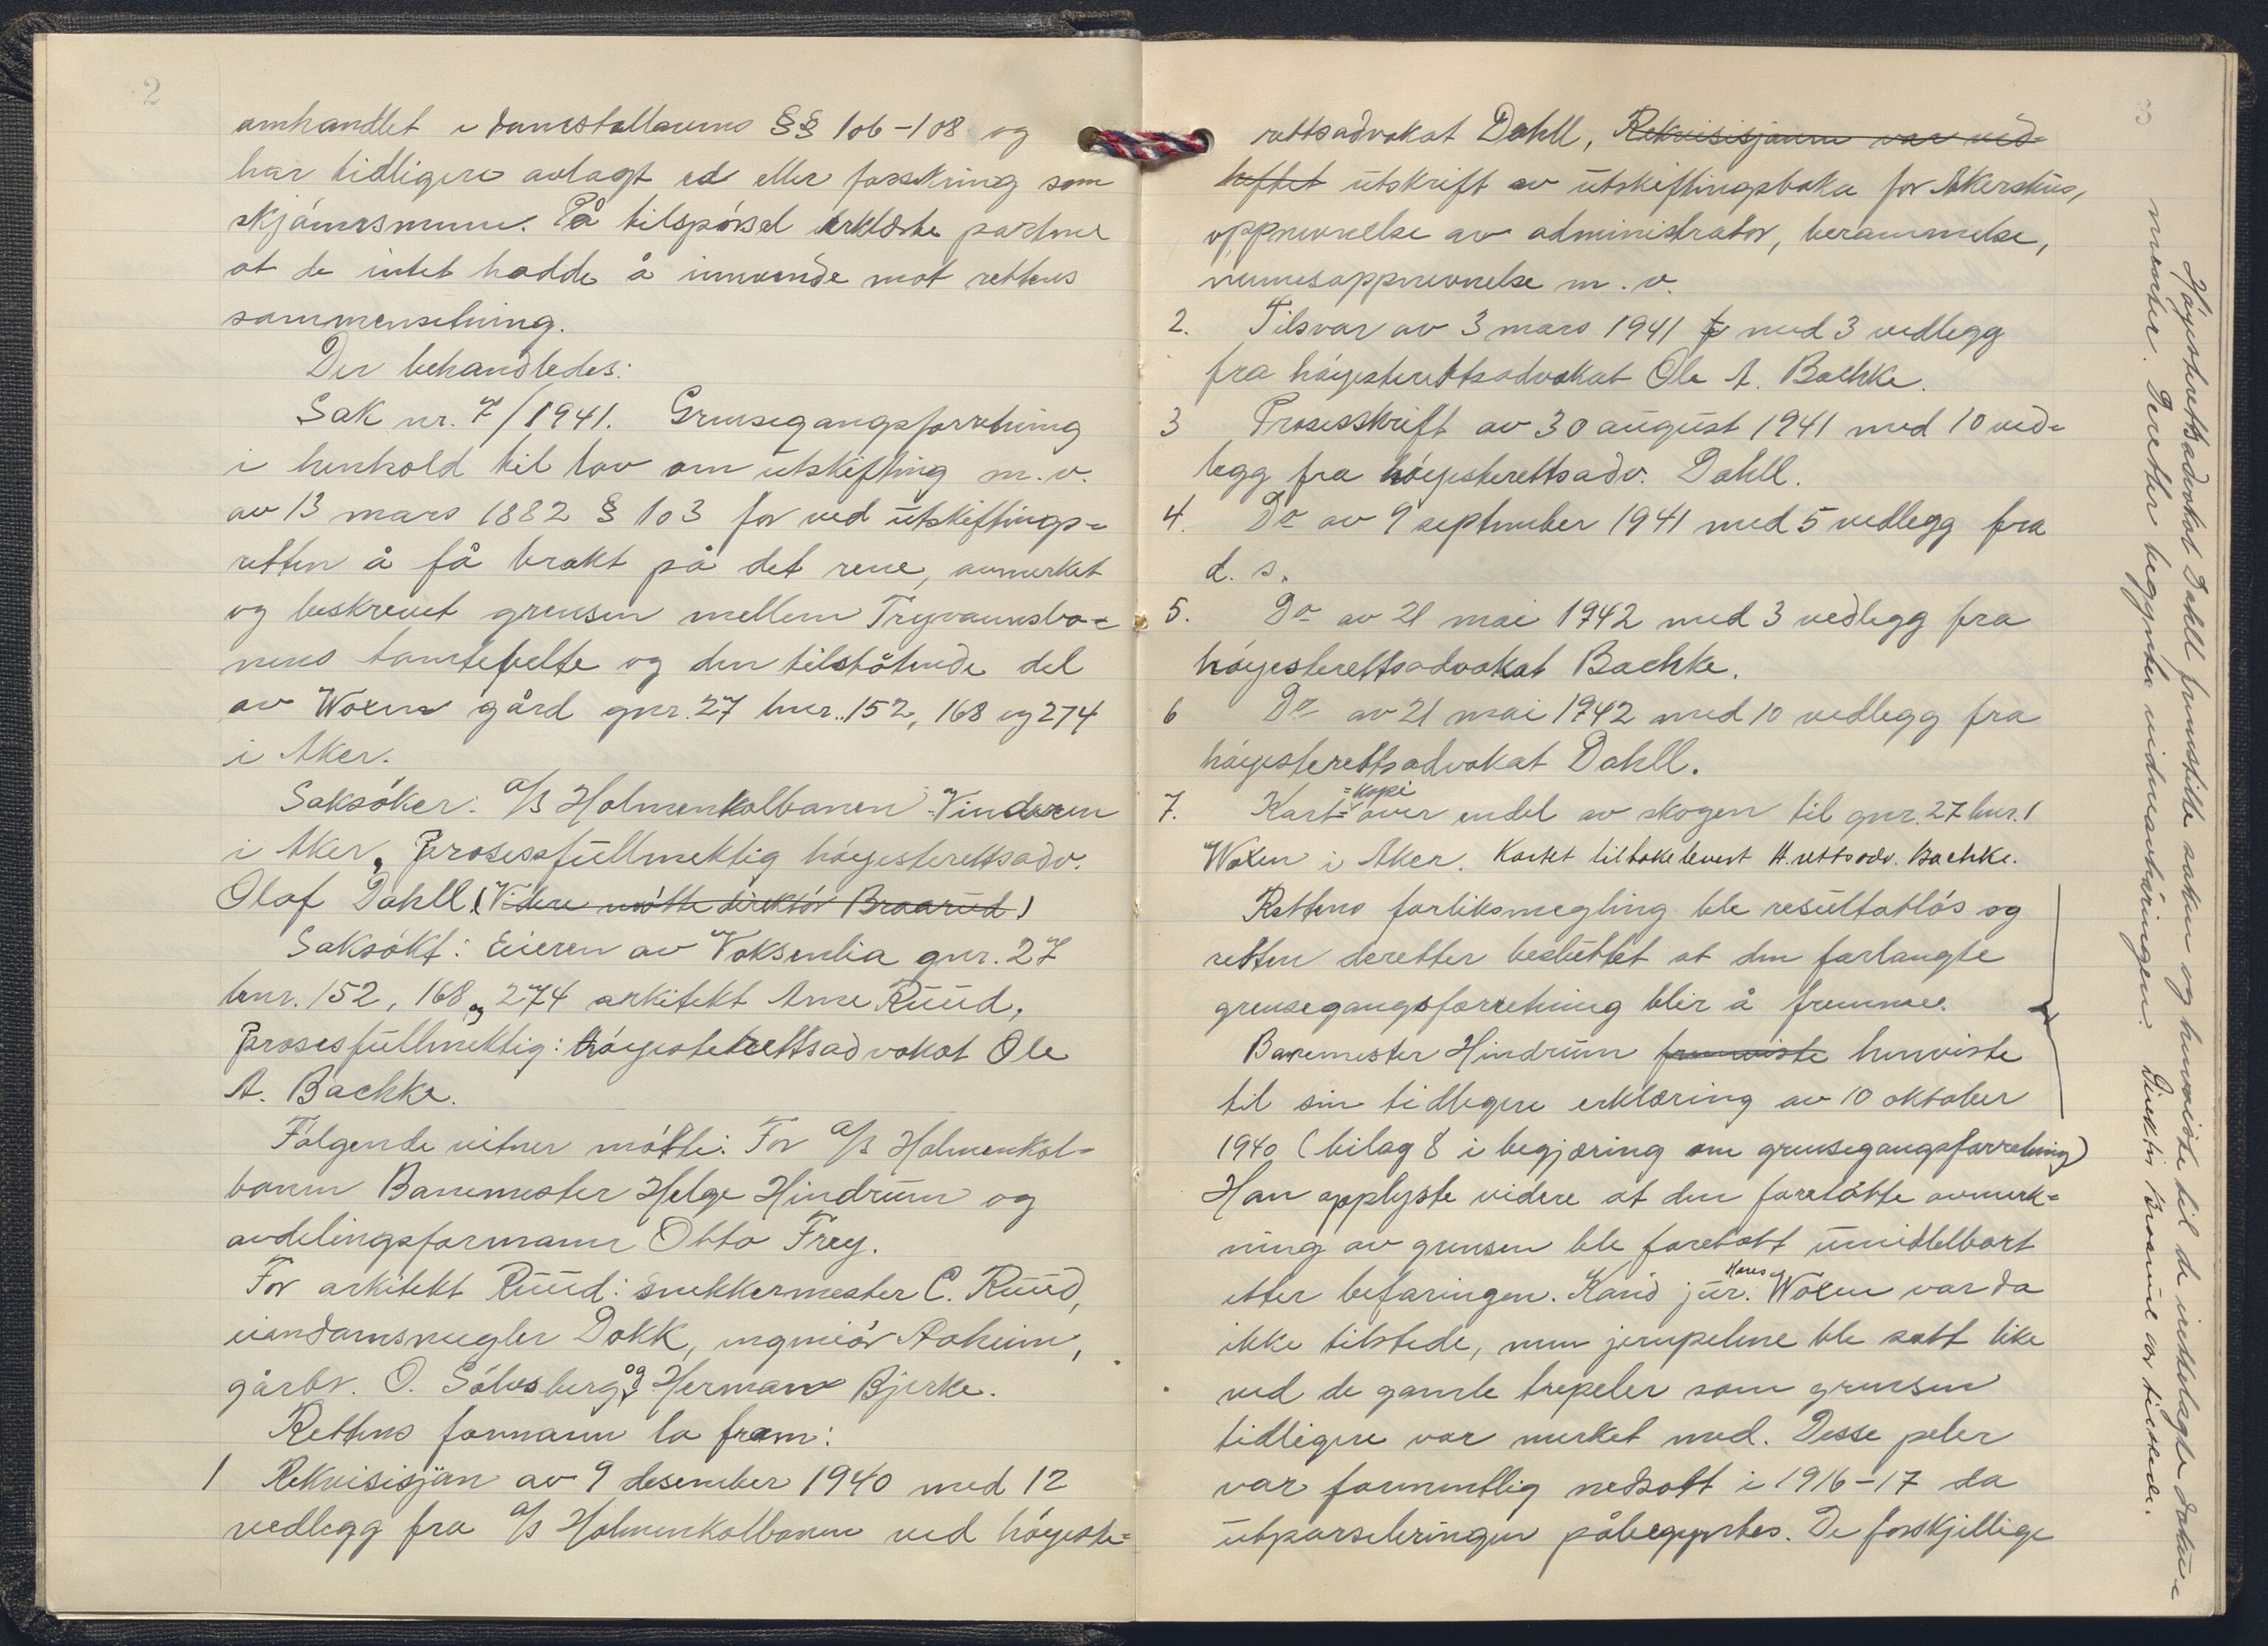 2
omhandlet i domstollovens §§ 106-108 og
har tidligere avlagt ed eller forsikring som
skjönnsmenn. På tilspörsel erklærte partene
at de intet hadde å innvende mot rettens
sammensetning.
Der behandledes:
Sak nr. 7/1941. Grensegangsforretning
i henhold til lov om utskifting m.v.
av 13 mars 1882 § 103 for ved utskiftings-
retten å få brakt på det rene, avmerket
og beskrevet grensen mellem Tryvannsba-
nens tomtefelte og den tilstötende del
av Woxen gård gnr. 27 bnr. 152, 168 og 274
i Aker.
Saksöker: A/S Holmenkolbanen Vinderen
i Aker, Prosessfullmektig höyesterettsadv.
Olaf Dahll. (Videre mötte direktör Braarud)
Saksökt: Eieren av Voksenlia gnr. 27
bnr. 152, 168 og 274 arkitekt Arne Ruud,
Prosesfullmektig: höyesterettsadvokat Ole
A. Bachke.
Fölgende vitner mötte: For A/S Holmenkol-
banen Banemester Helge Hindrum og
avdelingsformann Otto Frey.
For arkitekt Ruud: snekkermester C. Ruud,
eiendomsmegler Dokk, ingeniör Aaheim,
gårbr. O. Sölvsberg og Herman Bjerke.
Rettens formann la fram:
1 Rekvisisjon av 9 desember 1940 med 12
vedlegg fra A/S Holmenkolbanen ved höyeste-
3
rettsadvokat Dahll, Rekvisisjonen var ved-
heftet utskrift av utskiftingsboka for Akershus,
oppnevnelse av administrator, berammelse,
nemnesoppnevnelse m.v.
2. Tilsvar av 3 mars 1941 med 3 vedlegg
fra höyesterettsadvokat Ole A. Bachke.
3 Prosesskrift av 30 august 1941 med 10 ved-
legg fra höyesterettsadv. Dahll.
4. Do av 9 september 1941 med 5 vedlegg fra
d. s.
5. Do av 21 mai 1942 med 3 vedlegg fra
höyesterettsadvokat Bachke.
6 Do av 21 mai 1942 med 10 vedlegg fra
höyesterettsadvokat Dahll.
7. Kart-kopi over endel av skogen til gnr. 27 bnr. 1
Woxen i Aker. Kartet tilbakelevert H.rettsadv. Bachke.
Rettens forliksmegling ble resultatlös og
retten deretter besluttet at den forlangte
grensegangsforretning blir å fremme.
Banemester Hindrum fremviste henviste
til sin tidligere erklæring av 10 oktober
1940 (bilag 8 i begjæring om grensegangsforretning)
Han opplyste videre at den foretatte avmerk-
ning av grensen ble foretatt umiddelbart
etter befaringen. Kand jur. Hans Woxen var da
ikke tilstede, men jernpelene ble satt like
ved de gamle trepeler som grensen
tidligere var merket med. Desse peler
var formentlig nedsatt i 1916-17 da
utparseleringen påbegyntes. De forskjellige
Höyesterettsadvokat Dahll fremstilte saken og henviste til de innlagte doku-
menter. Deretter begynte vidneavhöringen. Direktör Braarud var tilstede.